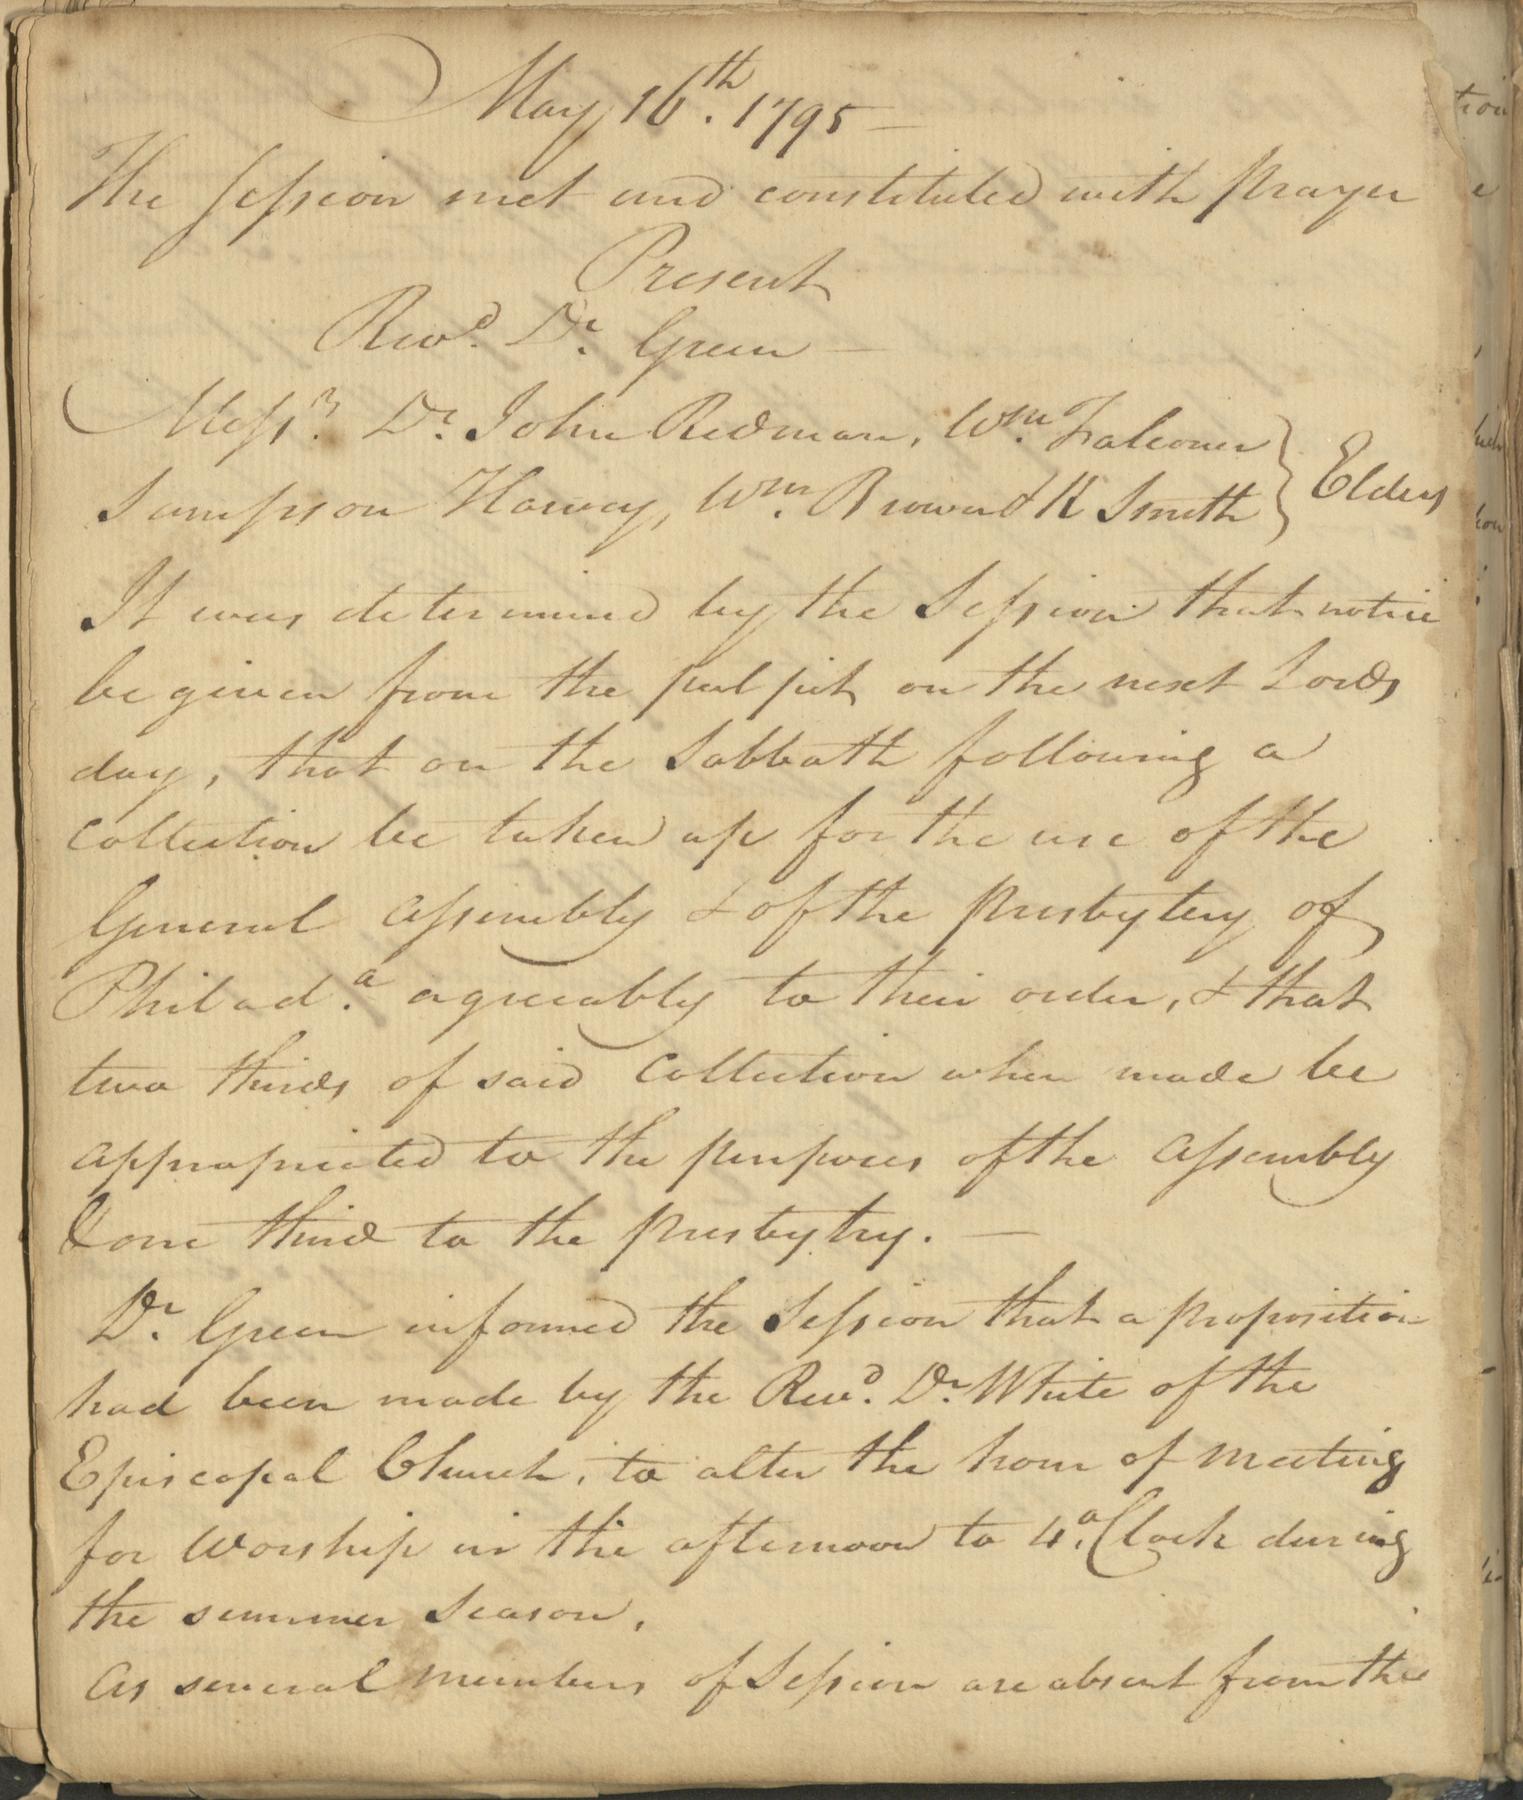 May 16th. 1795 —
The Session met and constituted with prayer
Present
Revd. Dr. Green —
Messrs. Dr. John Redman, Wm. Falconer
Sampson Harvey, Wm. Brown & R Smith } Elders
It was determined by the Session that notice
be given from the pulpit on the next Lords
day, that on the Sabbath following a
Collection be taken up for the use of the
General Assembly & of the Presbytery of
Philada. agreeably to their order, & that
two thirds of said Collection when made be
appropriated to the purposes of the Assembly
& one third to the presbytry. —
Dr. Green informed the Session that a proposition
had been made by the Revd. Dr. White of the
Episcopal Church, to alter the hour of meeting
for Worship in the afternoon to 4 o. Clock during
the summer Season.
As several members of Session are absent from the